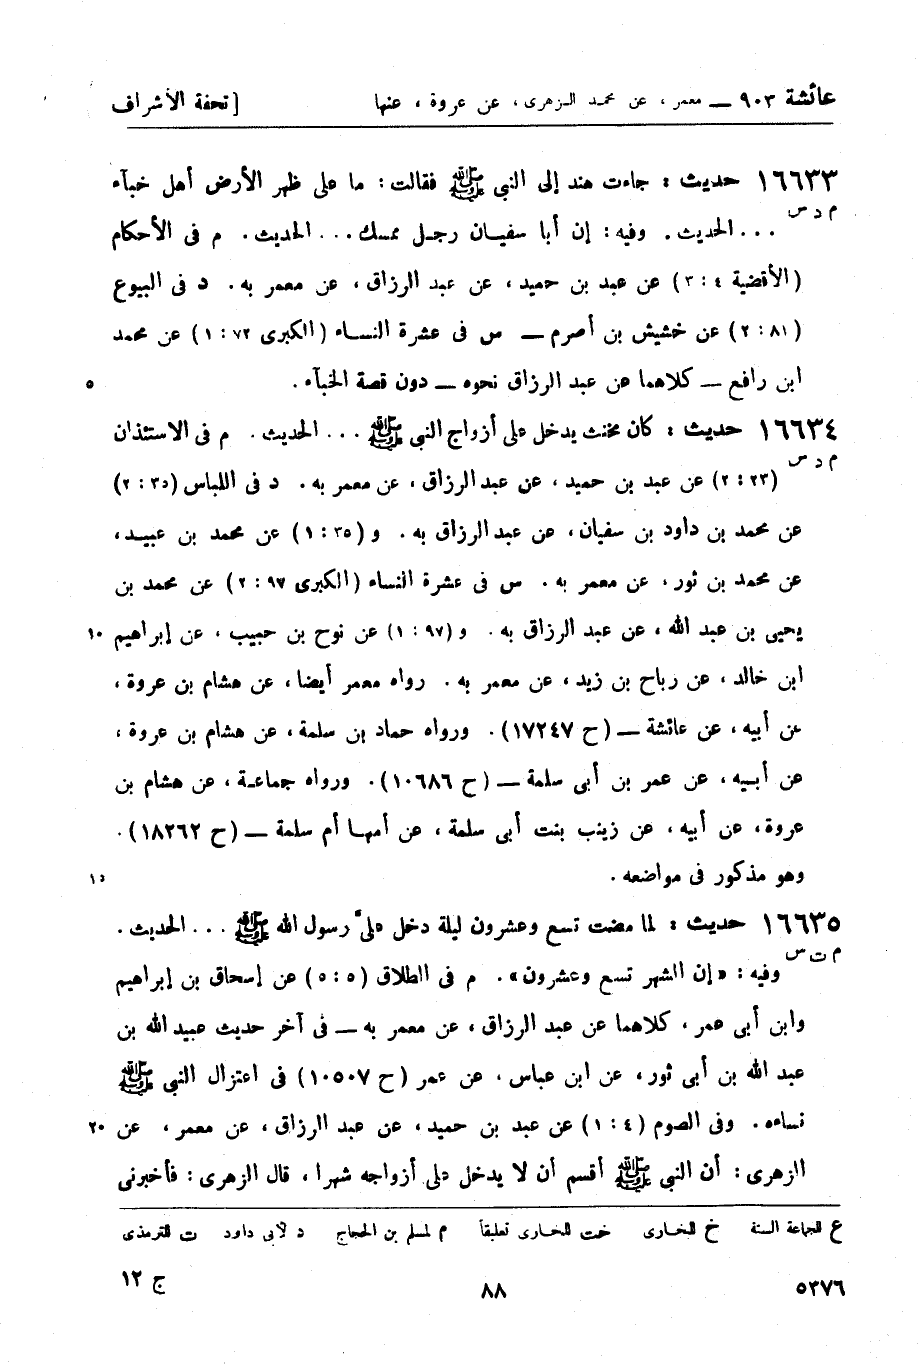 عائشة ٩٠٣ — معمر، عن محمد الزهرى، عن عروة، عنها [ تحفة الأشراف
١٦٦٣٣ حديث : جاءت هند إلى النبي ﷺ فقالت : ما على ظهر الأرض أهل خبآء
م د س
... الحديث. وفيه : إن أبا سفيان رجل ممسك... الحديث. م فى الأحكام
(الأقضية ٤ : ٣) عن عبد بن حميد، عن عبد الرزاق، عن معمر به. د فى البيوع
(٨١ : ٢) عن خشيش بن أصرم — س فى عشرة النساء (الكبرى ٧٢ : ١) عن محمد
ابن رافع — كلاهما عن عبد الرزاق نحوه — دون قصة الخبآء.
٥
١٦٦٣٤ حديث : كان مخنث يدخل على أزواج النبي ﷺ ... الحديث. م فى الاستئذان
م د س
(٢٣ : ٢) عن عبد بن حميد، عن عبد الرزاق، عن معمر به. د فى اللباس (٣٥ : ٢)
عن محمد بن داود بن سفيان، عن عبد الرزاق به. و (٣٥ : ١) عن محمد بن عبيد،
عن محمد بن ثور، عن معمر به. س فى عشرة النساء (الكبرى ٩٧ : ٢) عن محمد بن
يحيى بن عبد الله، عن عبد الرزاق به. و (٩٧ : ١) عن نوح بن حبيب، عن إبراهيم
١٠
ابن خالد، عن رباح بن زيد، عن معمر به. رواه معمر أيضا، عن هشام بن عروة،
عن أبيه، عن عائشة — (ح ١٧٢٤٧). ورواه حماد بن سلمة، عن هشام بن عروة،
عن أبيه، عن عمر بن أبى سلمة — (ح ١٠٦٨٦). ورواه جماعة، عن هشام بن
عروة، عن أبيه، عن زينب بنت أبى سلمة، عن أمها أم سلمة — (ح ١٨٢٦٢).
وهو مذكور فى مواضعه.
١٥
١٦٦٣٥ حديث : لما مضت تسع وعشرون ليلة دخل علىّ رسول الله ﷺ ... الحديث.
م ت س
وفيه : «إن الشهر تسع وعشرون». م فى الطلاق (٥ : ٥) عن إسحاق بن إبراهيم
وابن أبى عمر، كلاهما عن عبد الرزاق، عن معمر به — فى آخر حديث عبيد الله بن
عبد الله بن أبى ثور، عن ابن عباس، عن عمر (ح ١٠٥٠٧) فى اعتزال النبي ﷺ
نساءه. وفى الصوم (٤ : ١) عن عبد بن حميد، عن عبد الرزاق، عن معمر، عن
٢٠
الزهرى : أن النبي ﷺ أقسم أن لا يدخل على أزواجه شهرا، قال الزهرى : فأخبرنى
ع للجماعة الستة خ للبخارى خت للبخارى تعليقاً م لمسلم بن الحجاج د لأبى داود ت للترمذى
٥٣٧٦ ٨٨ ج ١٢